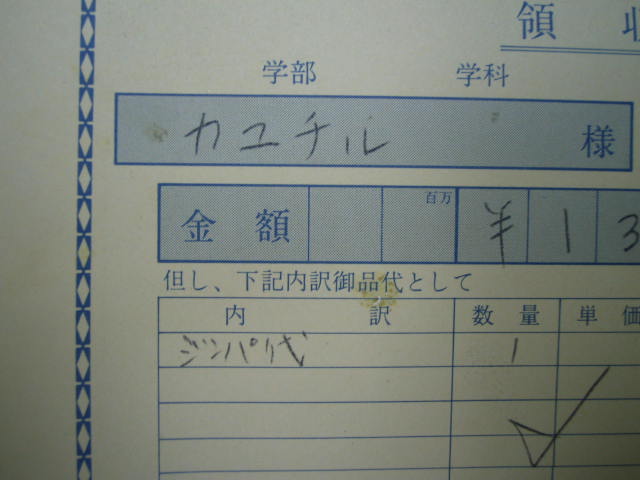 領収
学部 学科
カユチル 様
金額 百万 ¥ 1 3
但し、下記内訳御品代として
内訳 数量 単価
ジンパ代 1